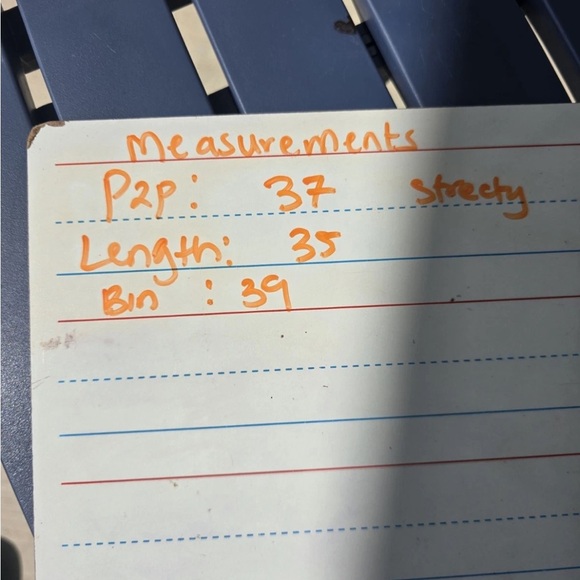 Measurements
P2P: 37 Strecty
Length: 35
Bin : 39